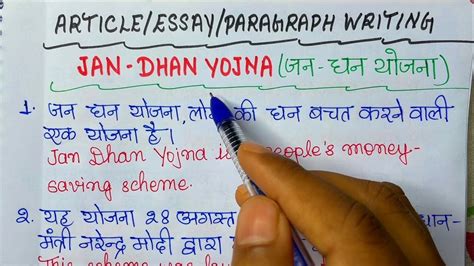 ARTICLE/ESSAY/PARAGRAPH WRITING
JAN-DHAN YOJNA (जन-धन योजना)
1. जन धन योजना, की धन बचत करने वाली
एक योजना है।
Jan Dhan Yojna people's money-
saving scheme.
2. यह योजना 28 अगस्त
मंत्री नरेन्द्र मोदी द्वारा
This scheme was